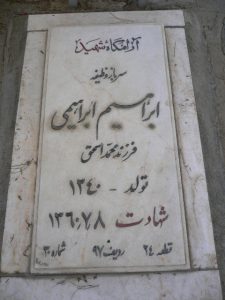 آرامگاه شهید
سرباز وظیفه
ابراهیم ابراهیمی
فرزند محمد اسحق
تولد - ۱۳۴۰
شهادت ۱۳۶۰/۷/۸
قطعه ۲۴ ردیف ۹۷ شماره ۳۰